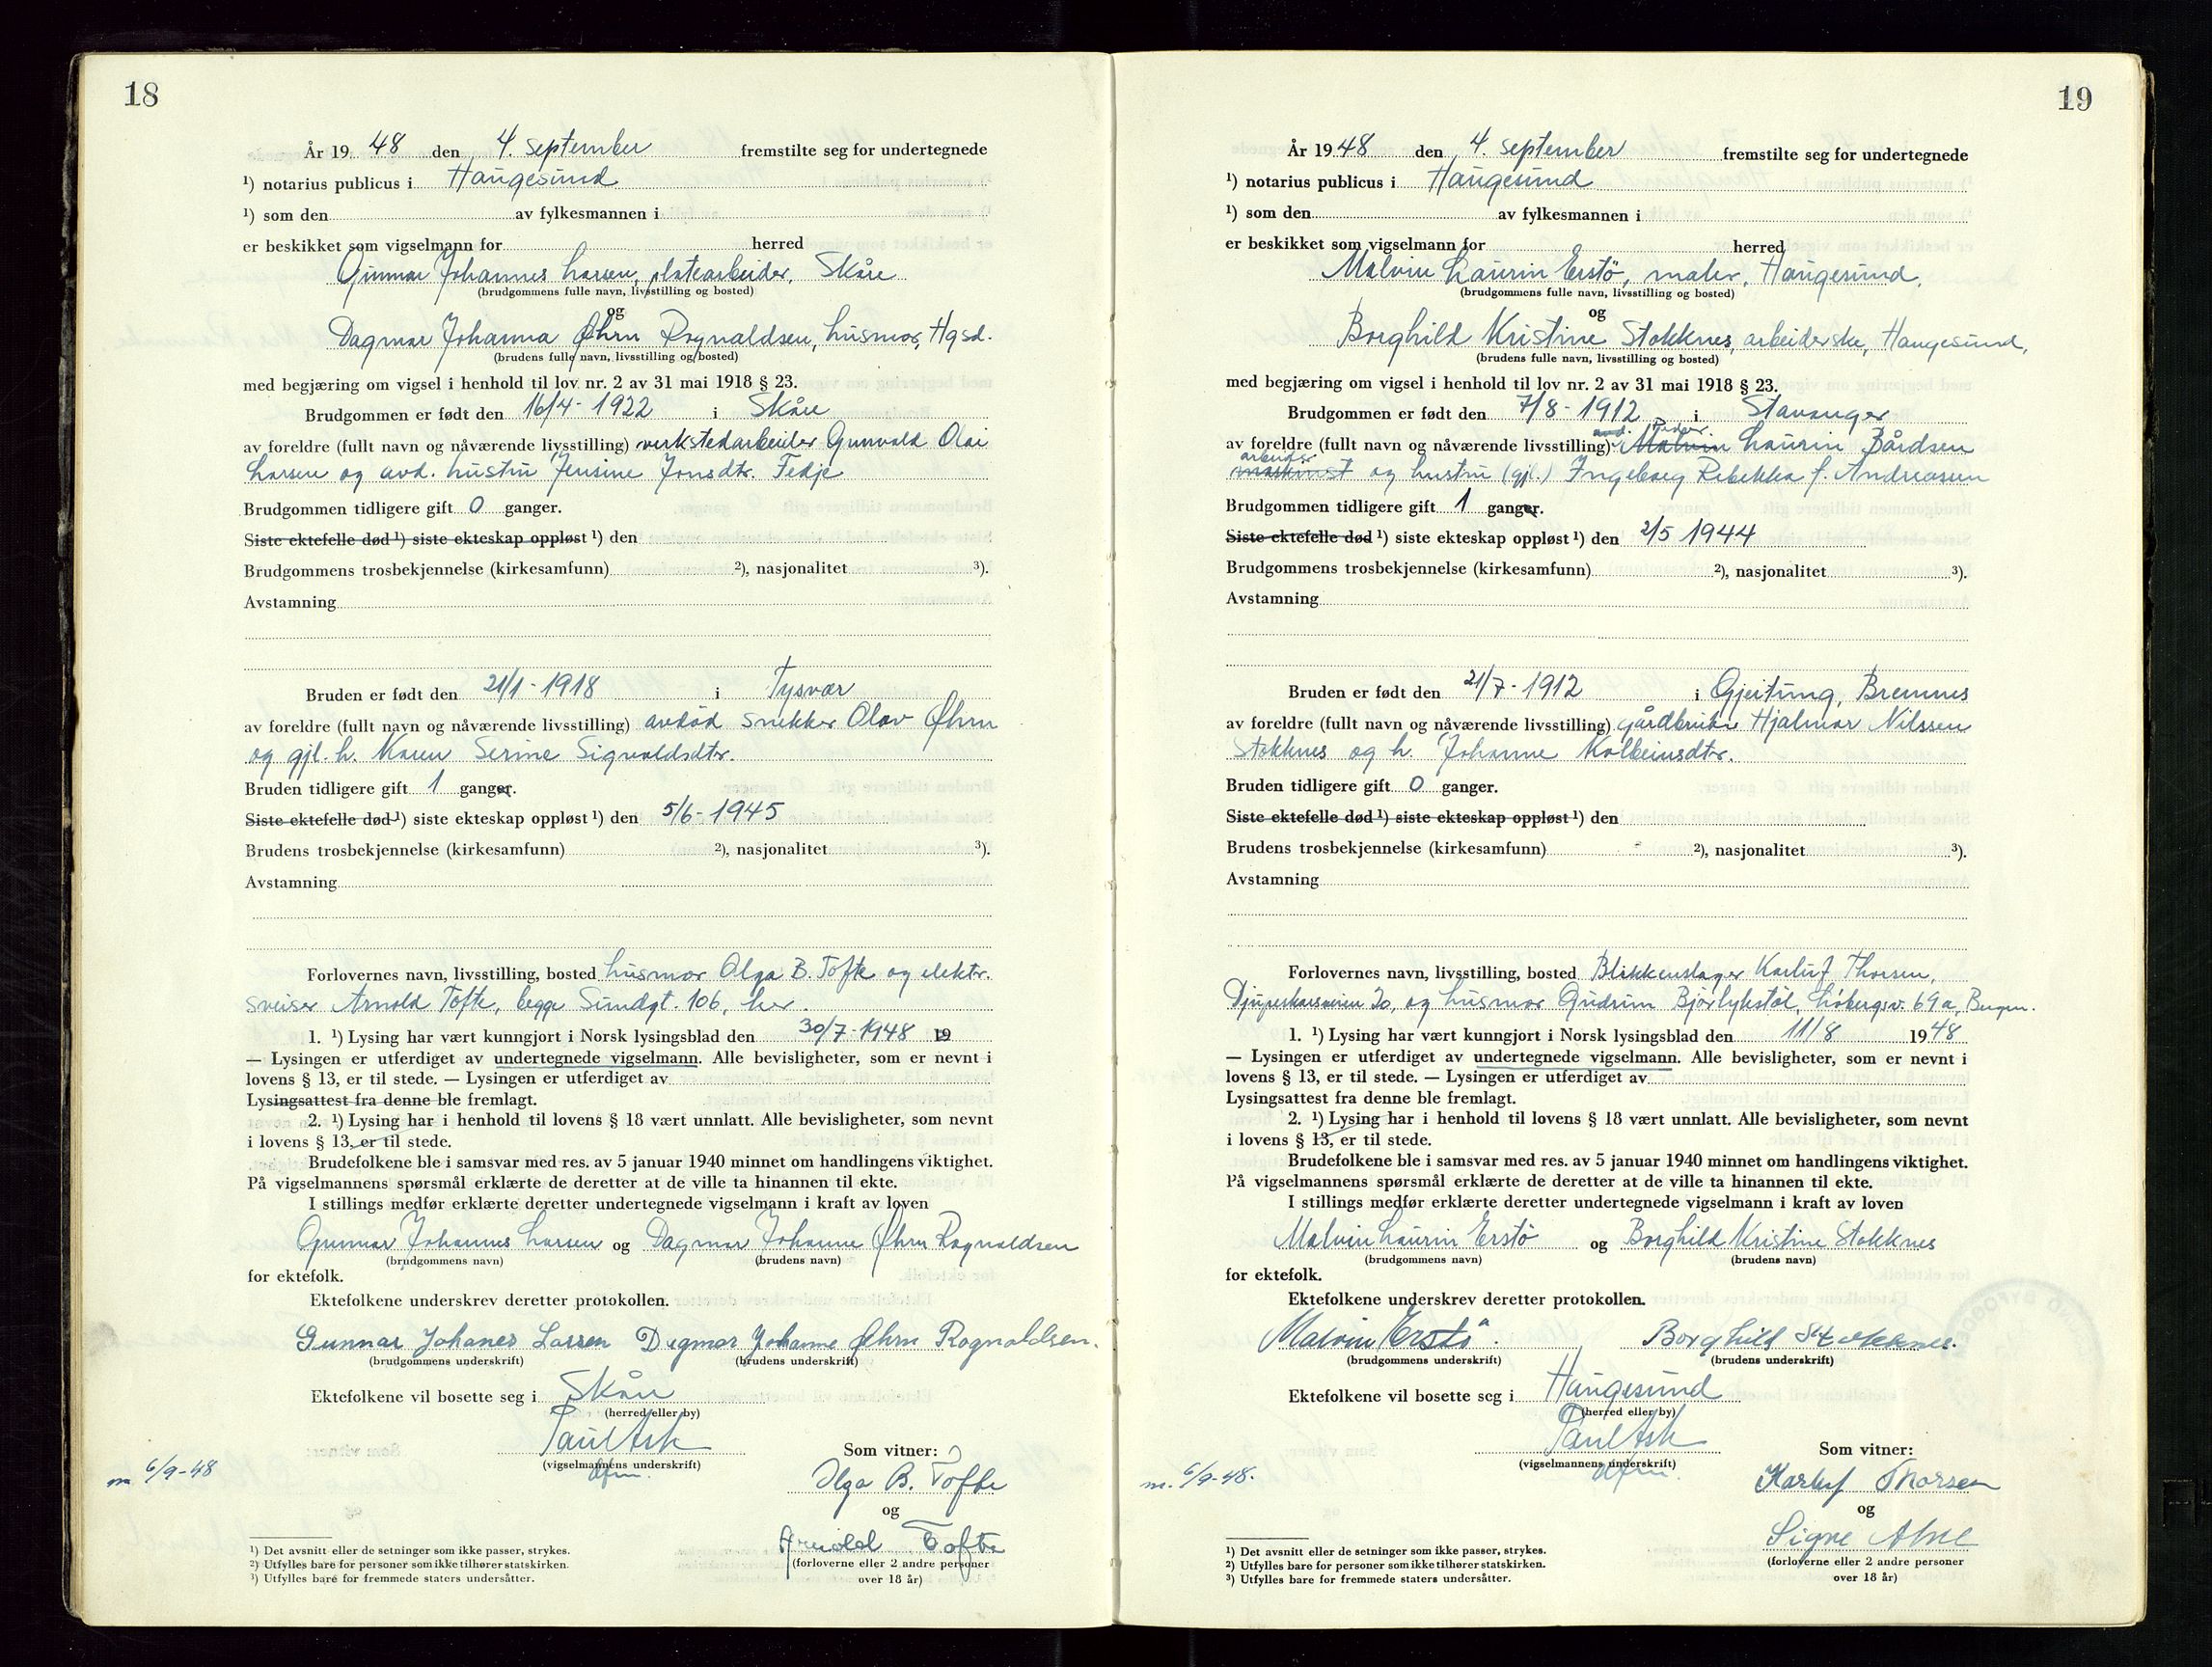 18
År 1948 den 4. september fremstilte seg for undertegnede
¹) notarius publicus i Haugesund
¹) som den av fylkesmannen i
er beskikket som vigselmann for herred
Gunnar Johannes Larsen, platearbeider, Skåre
(brudgommens fulle navn, livsstilling og bosted)
og
Dagmar Johanna Øhrn Rognaldsen, husmor, Hgsd.
(brudens fulle navn, livsstilling og bosted)
med begjæring om vigsel i henhold til lov nr. 2 av 31 mai 1918 § 23.
Brudgommen er født den 16/4 - 1922 i Skåre
av foreldre (fullt navn og nåværende livsstilling) verkstedarbeider Gunvald Olai
Larsen og avd. hustru Jensine Jonsdtr. Fedje
Brudgommen tidligere gift 0 ganger.
Siste ektefelle død ¹) siste ekteskap oppløst ¹) den
Brudgommens trosbekjennelse (kirkesamfunn) ²), nasjonalitet ³).
Avstamning
Bruden er født den 21/1 - 1918 i Tysvær
av foreldre (fullt navn og nåværende livsstilling) avdød snekker Olav Øhrn
og gjl. h. Karen Serine Sigvaldsdtr.
Bruden tidligere gift 1 ganger.
Siste ektefelle død ¹) siste ekteskap oppløst ¹) den 5/6 - 1945
Brudens trosbekjennelse (kirkesamfunn) ²), nasjonalitet ³).
Avstamning
Forlovernes navn, livsstilling, bosted husmor Olga B. Tofte og elektr.
sveiser Arnold Tofte, begge Sundgt. 106, her.
1. ¹) Lysing har vært kunngjort i Norsk lysingsblad den 30/7-1948 19
— Lysingen er utferdiget av undertegnede vigselmann. Alle bevisligheter, som er nevnt i
lovens § 13, er til stede. — Lysingen er utferdiget av
Lysingsattest fra denne ble fremlagt.
2. ¹) Lysing har i henhold til lovens § 18 vært unnlatt. Alle bevisligheter, som nevnt
i lovens § 13, er til stede.
Brudefolkene ble i samsvar med res. av 5 januar 1940 minnet om handlingens viktighet.
På vigselmannens spørsmål erklærte de deretter at de ville ta hinannen til ekte.
I stillings medfør erklærte deretter undertegnede vigselmann i kraft av loven
Gunnar Johannes Larsen og Dagmar Johanne Øhrn Rognaldsen
(brudgommens navn) (brudens navn)
for ektefolk.
Ektefolkene underskrev deretter protokollen.
Gunnar Johanes Larsen Dagmar Johanne Øhrn Rognaldsen.
(brudgommens underskrift) (brudens underskrift)
Ektefolkene vil bosette seg i Skåre
(herred eller by)
Paul Ask
(vigselmannens underskrift)
dfm.
m 6/9-48
Som vitner:
Olga B. Tofte
og
Arnold Tofte
(forloverne eller 2 andre personer
over 18 år)
¹) Det avsnitt eller de setninger som ikke passer, strykes.
²) Utfylles bare for personer som ikke tilhører statskirken.
³) Utfylles bare for fremmede staters undersåtter.
19
År 1948 den 4. september fremstilte seg for undertegnede
¹) notarius publicus i Haugesund
¹) som den av fylkesmannen i
er beskikket som vigselmann for herred
Malvin Laurin Erstö, maler, Haugesund.
(brudgommens fulle navn, livsstilling og bosted)
og
Borghild Kristine Stokknes, arbeiderske, Haugesund,
(brudens fulle navn, livsstilling og bosted)
med begjæring om vigsel i henhold til lov nr. 2 av 31 mai 1918 § 23.
Brudgommen er født den 7/8 - 1912 i Stavanger
av foreldre (fullt navn og nåværende livsstilling) avd. Peder Malvin Laurin Bårdsen
arbeider maskinist og hustru (gjl.) Ingeborg Rebekka f. Andreasen
Brudgommen tidligere gift 1 ganger.
Siste ektefelle død ¹) siste ekteskap oppløst ¹) den 2/5 1944
Brudgommens trosbekjennelse (kirkesamfunn) ²), nasjonalitet ³).
Avstamning
Bruden er født den 21/7 - 1912 i Gjeitung, Bremnes
av foreldre (fullt navn og nåværende livsstilling) gårdbruker Hjalmar Nilssen
Stokknes og h. Johanne Kolbeinsdtr.
Bruden tidligere gift 0 ganger.
Siste ektefelle død ¹) siste ekteskap oppløst ¹) den
Brudens trosbekjennelse (kirkesamfunn) ²), nasjonalitet ³).
Avstamning
Forlovernes navn, livsstilling, bosted Blikkenslager Karluf Thorsen,
20, og husmor Gudrun 69a, Bergen.
1. ¹) Lysing har vært kunngjort i Norsk lysingsblad den 11/8 1948
— Lysingen er utferdiget av undertegnede vigselmann. Alle bevisligheter, som er nevnt i
lovens § 13, er til stede. — Lysingen er utferdiget av
Lysingsattest fra denne ble fremlagt.
2. ¹) Lysing har i henhold til lovens § 18 vært unnlatt. Alle bevisligheter, som nevnt
i lovens § 13, er til stede.
Brudefolkene ble i samsvar med res. av 5 januar 1940 minnet om handlingens viktighet.
På vigselmannens spørsmål erklærte de deretter at de ville ta hinannen til ekte.
I stillings medfør erklærte deretter undertegnede vigselmann i kraft av loven
Malvin Laurin Erstö og Borghild Kristine Stokknes
(brudgommens navn) (brudens navn)
for ektefolk.
Ektefolkene underskrev deretter protokollen.
Malvin Erstö. Borghild Stokknes.
(brudgommens underskrift) (brudens underskrift)
Ektefolkene vil bosette seg i Haugesund
(herred eller by)
Paul Ask
(vigselmannens underskrift)
dfm.
m. 6/9-48.
Som vitner:
Karluf Thorsen
og
Signe
(forloverne eller 2 andre personer
over 18 år)
¹) Det avsnitt eller de setninger som ikke passer, strykes.
²) Utfylles bare for personer som ikke tilhører statskirken.
³) Utfylles bare for fremmede staters undersåtter.